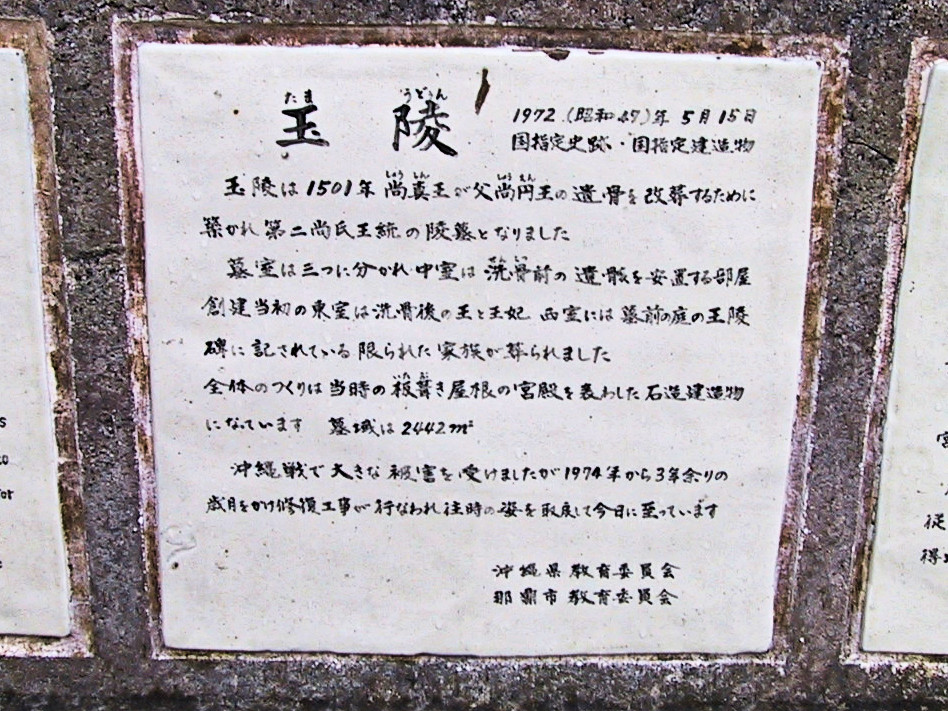 たま うどぅん
玉 陵
1972 (昭和47)年 5月15日
国指定史跡・国指定建造物
玉陵は1501年 尚真王が父尚円王の遺骨を改葬するために
築かれ 第二尚氏王統の陵墓となりました
墓室は三つに分かれ 中室は 洗骨前の 遺骸を安置する部屋
創建当初の東室は洗骨後の王と王妃 西室には墓前の庭の玉陵
碑に記されている 限られた 家族が葬られました
全体のつくりは当時の板葺き屋根の宮殿を表わした石造建造物
になっています 墓域は2442m²
沖縄戦で大きな被害を受けましたが1974年から3年余りの
歳月をかけ修復工事が行なわれ往時の姿を取戻して今日に至っています
沖縄県教育委員会
那覇市教育委員会
s
to
for
宮
従
得